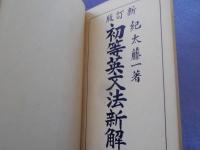 紀太藤一著
新訂版
初等英文法新解